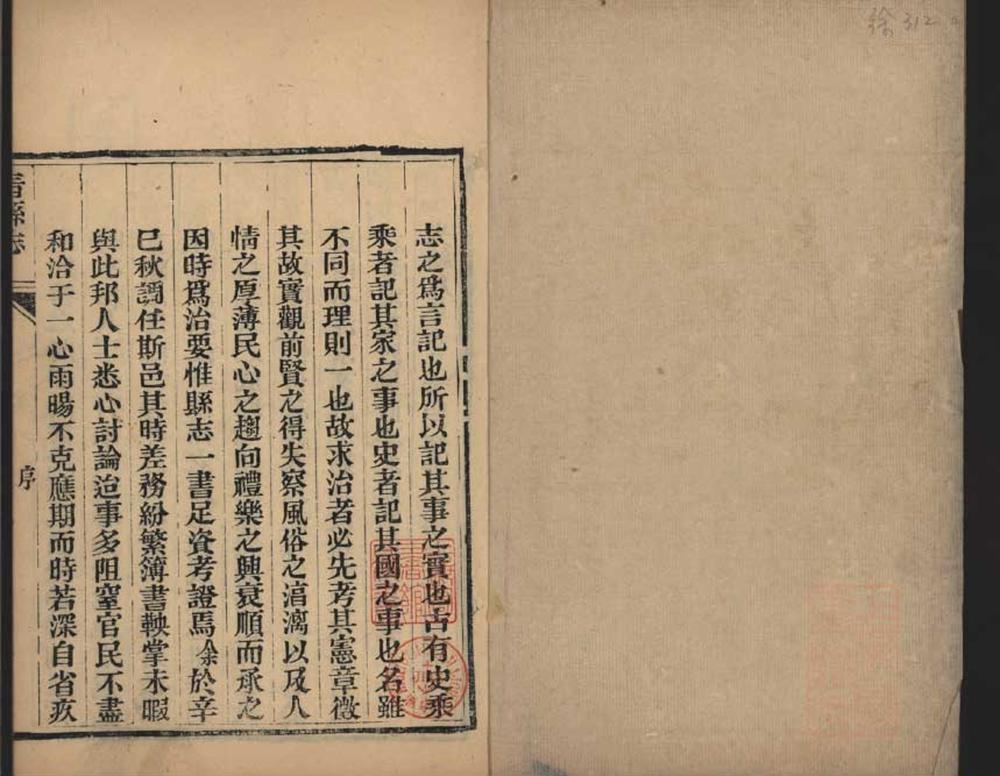 徐 312
志之爲言記也所以記其事之實也古有史乘
乘者記其家之事也史者記其國之事也名雖
不同而理則一也故求治者必先考其憲章徵
其故實觀前賢之得失察風俗之淳漓以及人
情之厚薄民心之趨向禮樂之興衰順而承之
因時爲治要惟縣志一書足資考證焉余於辛
巳秋調任斯邑其時差務紛繁簿書鞅掌未暇
與此邦人士悉心討論迨事多阻窒官民不盡
和洽于一心雨暘不克應期而時若深自省疚
縣志
序